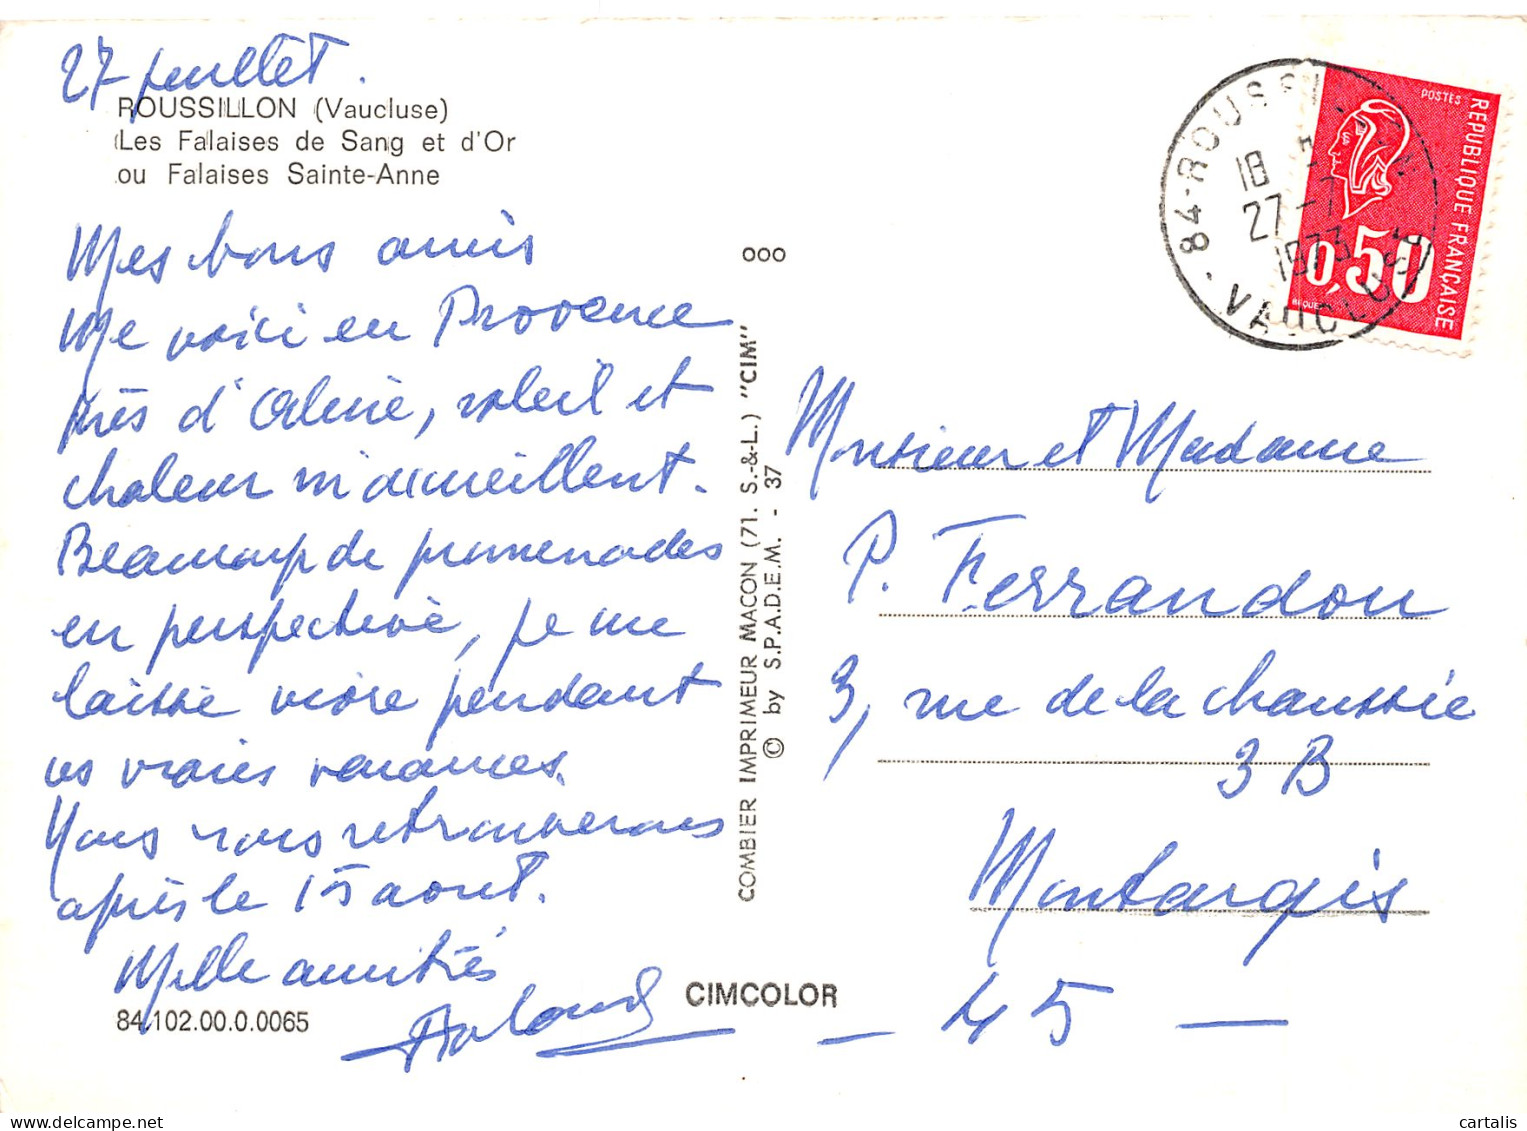 27 juillet.
ROUSSILLON (Vaucluse)
Les Falaises de Sang et d'Or
ou Falaises Sainte-Anne
Mes bons amis
Me voici en Provence
près d' , soleil et
chaleur m'accueillent.
Beaucoup de promenades
en perspective, je me
laisse vivre pendant
ces vraies vacances.
Nous nous retrouverons
après le 15 août.
Mille amitiés
84.102.00.0.0065
CIMCOLOR
COMBIER IMPRIMEUR MACON (71. S.-&-L.) "CIM"
© by S.P.A.D.E.M. - 37
000
84-ROUSSILLON
18 H
27-7
1973
VAUCLUSE
POSTES
REPUBLIQUE FRANÇAISE
0,50
BEQUET
Monsieur et Madame
P. Ferrandou
3, rue de la chaussée
3 B
Montargis
- 45 -
cartalis